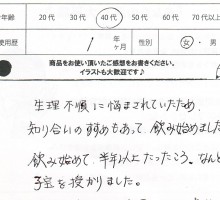 年齢 20代 30代 40代 50代 60代 70代以上
使用歴 1 年 ヶ月 性別 女・男
商品をお使い頂いたご感想をお書きください。
イラストも大歓迎です♪
生理不順に悩まされていたため、
知り合いのすすめもあって、飲み始めました
飲み始めて、半年以上たったころ。なんと
子宝を授かりました。